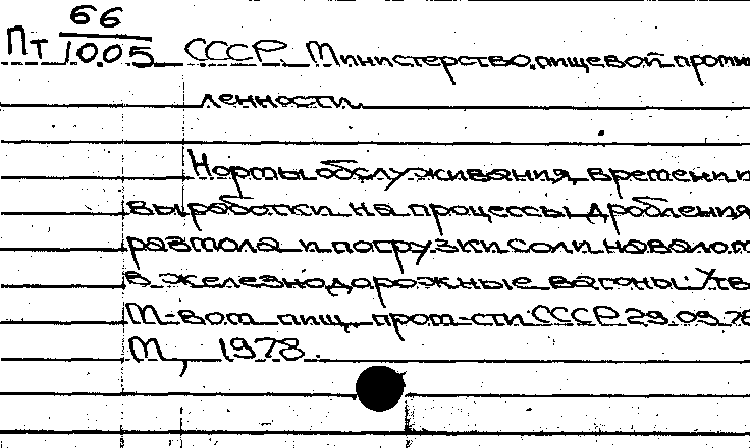 Пт 66
1005 СССР. Министерство пищевой промыш
ленности.
Нормы обслуживания, времени и
выработки на процессы дробления
размола и погрузки соли навалом
в железнодорожные вагоны: Утв
М-вом пищ. пром-сти СССР 29.09.78
М, 1978.